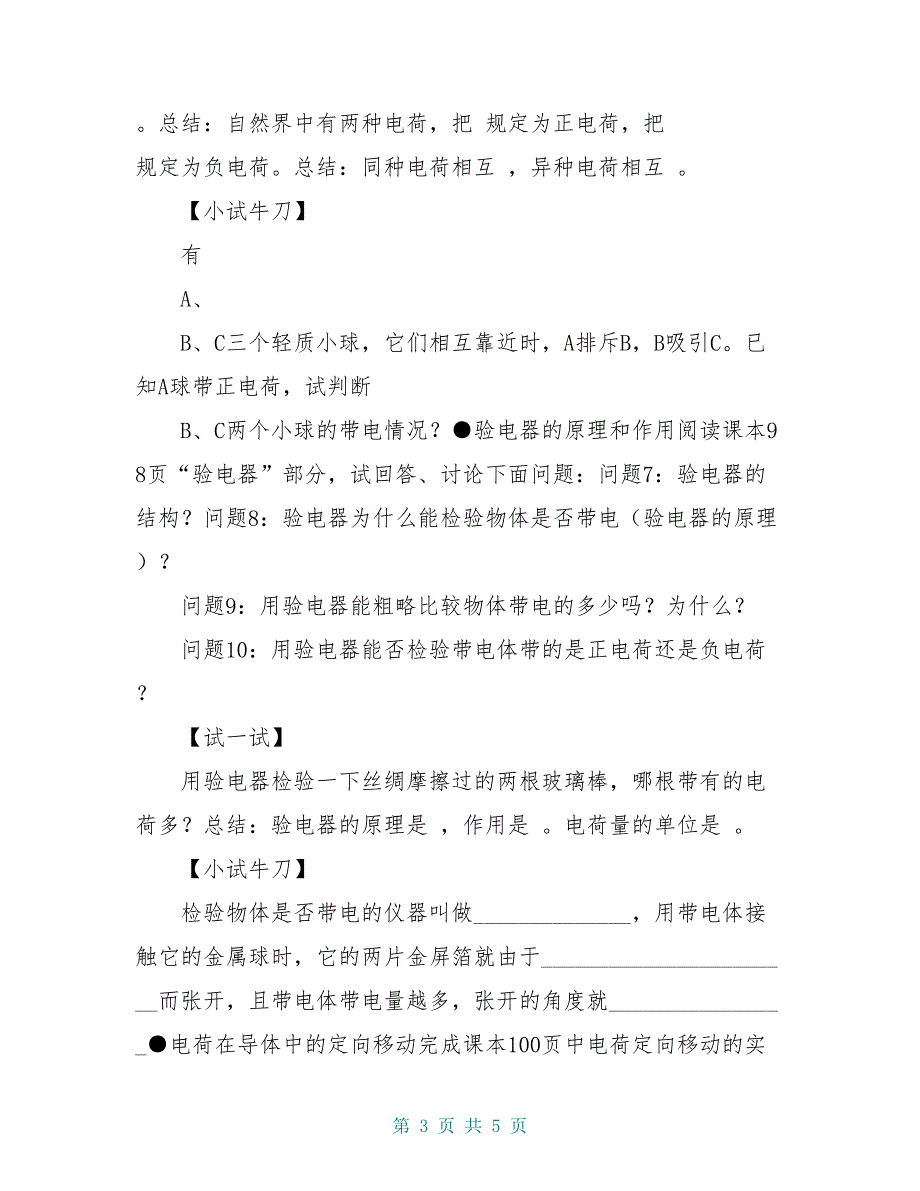 。总结：自然界中有两种电荷，把 规定为正电荷，把
规定为负电荷。总结：同种电荷相互 ，异种电荷相互 。
【小试牛刀】
有
A、
B、C三个轻质小球，它们相互靠近时，A排斥B，B吸引C。已
知A球带正电荷，试判断
B、C两个小球的带电情况？●验电器的原理和作用阅读课本9
8页“验电器”部分，试回答、讨论下面问题：问题7：验电器的
结构？问题8：验电器为什么能检验物体是否带电（验电器的原理
）？
问题9：用验电器能粗略比较物体带电的多少吗？为什么？
问题10：用验电器能否检验带电体带的是正电荷还是负电荷
？
【试一试】
用验电器检验一下丝绸摩擦过的两根玻璃棒，哪根带有的电
荷多？总结：验电器的原理是 ，作用是 。电荷量的单位是 。
【小试牛刀】
检验物体是否带电的仪器叫做_______________，用带电体接
触它的金属球时，它的两片金屏箔就由于______________________
__而张开，且带电体带电量越多，张开的角度就________________
_●电荷在导体中的定向移动完成课本100页中电荷定向移动的实
第 3 页 共 5 页